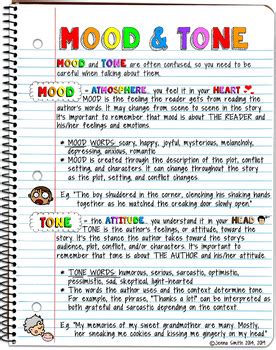 MOOD & TONE
MOOD and TONE are often confused, so you need to
be careful when talking about them.
MOOD = ATMOSPHERE... you feel it in your HEART
MOOD is the feeling the reader gets from reading the
author's words. It may change from scene to scene in the story.
It's important to remember that mood is about THE READER and
his/her feelings and emotions.
• MOOD WORDS: scary, happy, joyful, mysterious, melancholy,
depressing, anxious, romantic
• MOOD is created through the description of the plot, conflict
setting, and characters. It can change throughout the story
as the plot, setting, and conflict changes.
Eg. "The boy shuddered in the corner, clenching his shaking hands
together as he watched the creaking door slowly open."
TONE = the ATTITUDE... you understand it in your HEAD
TONE is the author's feelings, or attitude, toward the
story. It's the stance the author takes toward the story's
audience, plot, conflict, and/or characters. It's important to
remember that tone is about THE AUTHOR and his/her attitude.
• TONE WORDS: humorous, serious, sarcastic, optimistic,
pessimistic, sad, skeptical, light-hearted
• The words the author uses and the context determine tone.
For example, the phrase, "Thanks a lot!" can be interpreted as
both grateful and sarcastic depending on the context.
Eg. "My memories of my sweet grandmother are many. Mostly,
her sneaking me cookies and kissing me gently on my forehead."
©Jenna Smith 2014, 2019